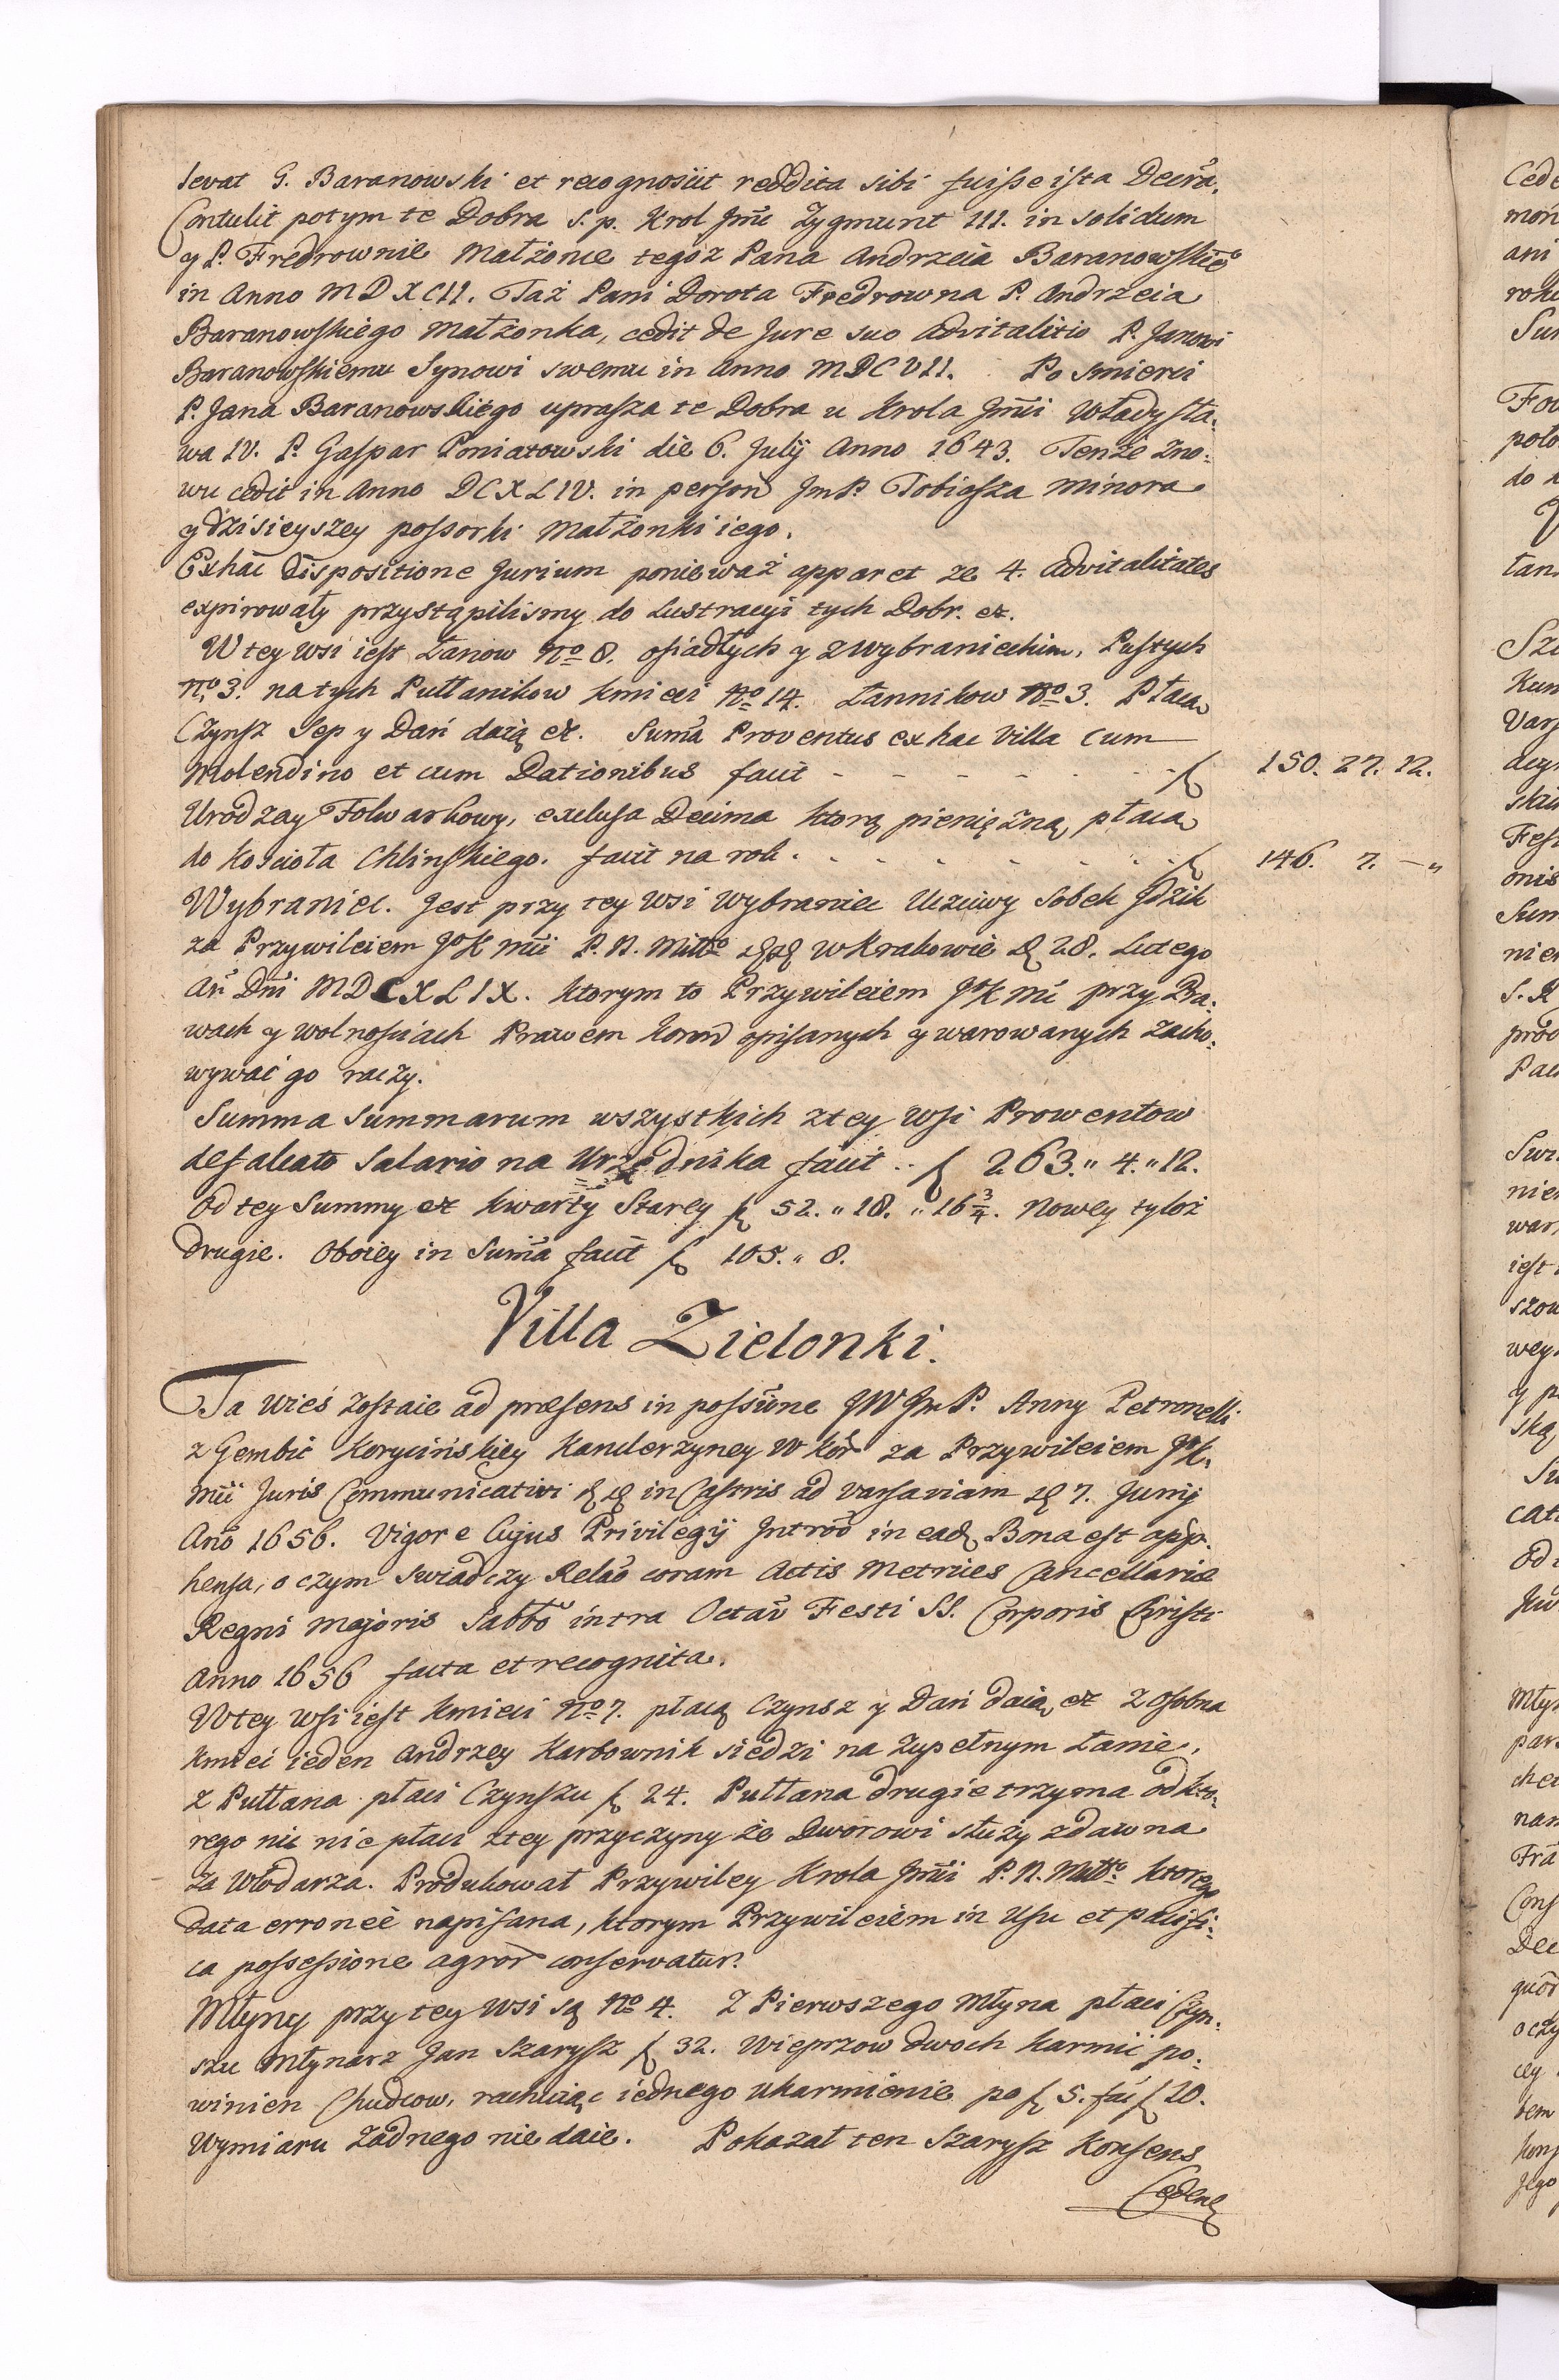 levat G. Baranowski et recognosiit reddita sibi fuisse ista Decra.
Contulit potym te Dobra s. p. Krol Jmć Zygmunt III. in solidum
y P. Fredrownie Małżonce tegoż Pana Andrzeia Baranowskie͠
in Anno MDXCII. Taż Pani Dorota Fredrowna P. Andrzeia
Baranowskiego Małżonka, cedit de Jure suo Advitalitio P. Janowi
Baranowskiemu Synowi swemu in Anno MDCVII. Po Smierci
P. Jana Baranowskiego uprasza te Dobra u Krola Jmći Władysła-
wa IV. P. Gaspar Poniatowski die 6. Julij Anno 1643. Tenże zno-
wu cedit in Anno DCXLIV. in person Jm P. Tobiasza Minora
y dzisieyszey possorki Małżonki iego.
Ex hac dispositione Jurium ponieważ apparet ze 4. Advitalitates
expirowały przystąpilismy do Lustracyi tych Dobr. et.
W tey wsi iest Łanow No 8. osiadłych y z Wybranieckim, Pustych
No 3. na tych Pułłanikow kmieci No 14. Łannikow No 3. Płaca
Czynsz Sep y Dań daią et. Suma Proventus ex hac Villa cum
Molendino et cum Dationibus facit - - - - - - - f 150. 27. 12.
Urodzay Folwarkowy, exclusa Decima ktorą pieniężną płaca
do Kościoła Chlinskiego. facit na rok . - - - - - - f 146. 7. — "
Wybraniec. Jest przy tey Wsi Wybraniec Uczciwy Sobek Jdzik
za Przywileiem JoK Mći P. N. Miłło w Krakowie 28. Lutego
An Dni MDCXLIX. ktorym to Przywileiem JoK Mć przy Pra-
wach y wolnosciach Prawem Koron opisanych y warowanych zacho-
wywać go raczy.
Summa Summarum wszystkich z tey Wsi Prowentow
defalcato Salario na Urzędnika facit .. f 263. " 4. " 12.
Od tey Summy et Kwarty Starey f 52. " 18. " 16 3/4. Nowey tyloż
drugie. Oboiey in Suma facit f 105. " 8.
Villa Zielonki.
Ta Wieś zostaie ad præsens in possione JW Jm P. Anny Petronelli
z Gembic Korycińskiey Kanclerzyney W Kor za Przywileiem JoK
Mći Juris Communicativi in Castris ad Varsaviam 7. Junij
Ano 1656. Vigore Cujus Privilegij Introd in ead Bona est app-
hensa, o czym swiadczy Relao coram Actis Metrices Cancellariæ
Regni Majoris Sabbo intra Octav Festi SS. Corporis Christi
Anno 1656 facta et recognita.
W tey wsi iest Kmieci No 7. płacą Czynsz y Dań daią et Z osobna
kmieć ieden Andrzey Karbownik siedzi na zupełnym Łanie,
z Pułłana płaci Czynszu f 24. Pułłana drugie trzyma od kto-
rego nic nie płaci z tey przyczyny że Dworowi służy zdawna
za Włodarza. Produkował Przywiley Krola Jmći P. N. Miłło ktorego
Data erroneè napisana, ktorym Przywileiem in Usu et pacifi-
ca possessione agror conservatur.
Młyny przy tey Wsi są No 4. Z Pierwszego Młyna płaci Czyn-
szu Młynarz Jan Szarysz f 32. Wieprzow dwoch karmić po-
winien Chudcow, rachuiąc iednego ukarmienie po f 5. fać f 10.
Wymiaru żadnego nie daie. Pokazał ten Szarysz Konsens